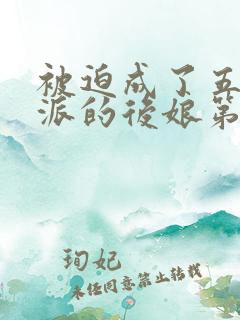 被迫成了五
派的後娘第
珣妃
未经同意禁止转载